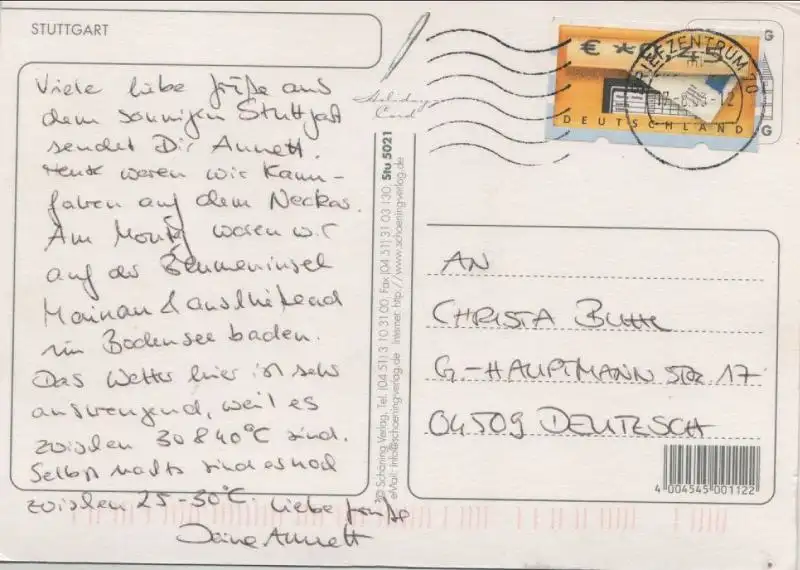 STUTTGART
Viele liebe Grüße aus
dem sonnigen Stuttgart
sendet Dir Annett.
Heute waren wir Kann-
fahren auf dem Neckar.
Am Montag waren wir
auf der Blumeninsel
Mainau & anschließend
im Bodensee baden.
Das Wetter hier ist sehr
anstrengend, weil es
zwischen 30 & 40°C sind.
Selbst nachts sind es noch
zwischen 25-30°C. Liebe Grüße
Deine Annett
Holiday
Card
© Schöning Verlag, Tel. (04 51) 3 10 31 00, Fax (04 51) 31 03 130, Stu 5021
eMail: info@schoening-verlag.de Internet: http://www.schoening-verlag.de
€ *0,45
DEUTSCHLAND
BRIEFZENTRUM 70
G
G
AN
CHRISTA
G.-HAUPTMANN STR. 17
04509 DELITZSCH
4 004545 001122